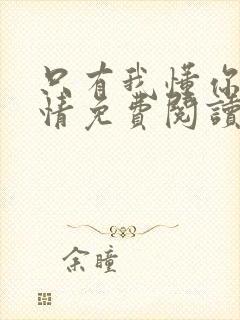 只有我懂你
情免費閱讀
余瞳